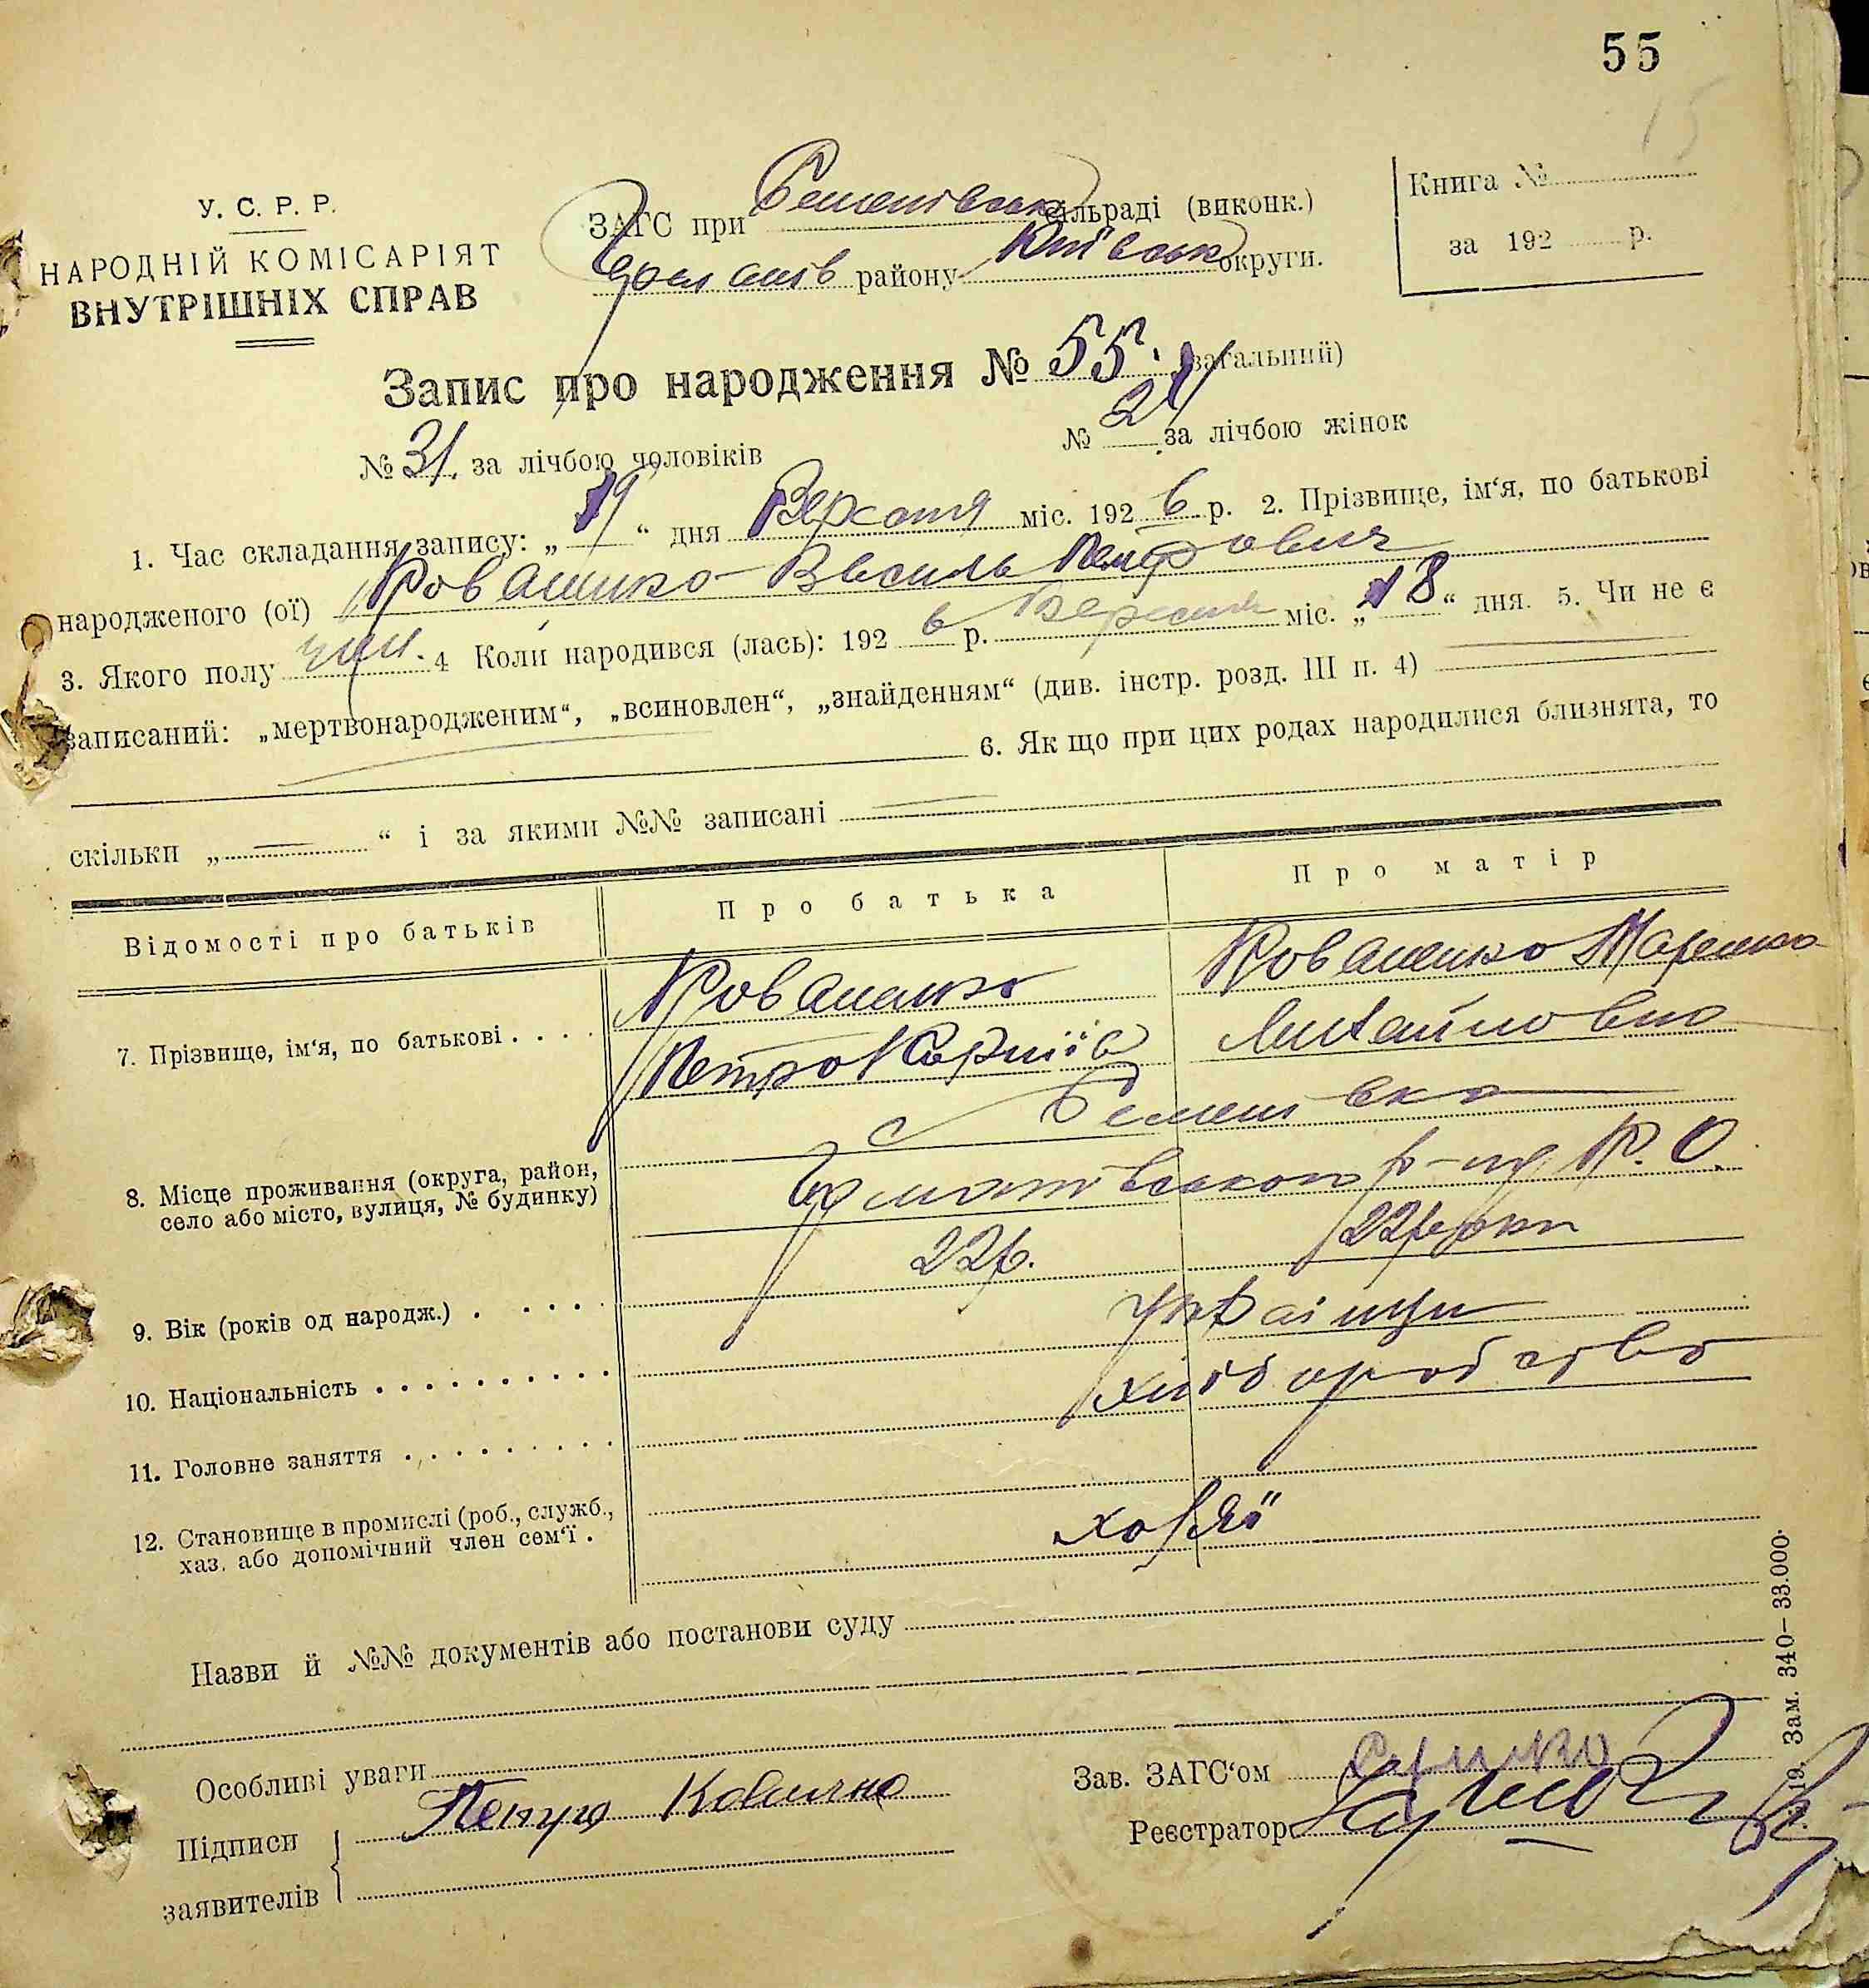 55
15
У. С. Р. Р.
НАРОДНІЙ КОМІСАРІЯТ
ВНУТРІШНІХ СПРАВ
ЗАГС при Семенівськ сільраді (виконк.)
району Київськ округи.
Книга №
за 192 р.
Запис про народження № 55. (загальний)
№ 31. за лічбою чоловіків
№ 24 за лічбою жінок
1. Час складання запису: „19“ дня Вересня міс. 1926 р. 2. Прізвище, ім‘я, по батькові
народженого (ої) Василь Петрович
3. Якого полу чол. 4 Коли народився (лась): 1926 р. Вересня міс. „18“ дня. 5. Чи не є
записаний: „мертвонародженим“, „всиновлен“, „знайденням“ (див. інстр. розд. III п. 4)
6. Як що при цих родах народилися близнята, то
скільки „ — “ і за якими №№ записані —
Відомості про батьків
Про батька
Про матір
7. Прізвище, ім‘я, по батькові . . . .
Петро
Михайловна
8. Місце проживання (округа, район,
село або місто, вулиця, № будинку)
с Семенівка
р-ну К. О.
9. Вік (років од народж.) . . . . .
22р.
22 роки
10. Національність . . . . . . . . . .
українци
11. Головне заняття . . . . . . . . .
хліборобство
12. Становище в промислі (роб., служб.,
хаз. або допомічний член сем‘ї .
Назви й №№ документів або постанови суду
Особливі уваги
Зав. ЗАГС‘ом
Підписи
заявителів
Реєстратор
19. Зам. 340–33.000.